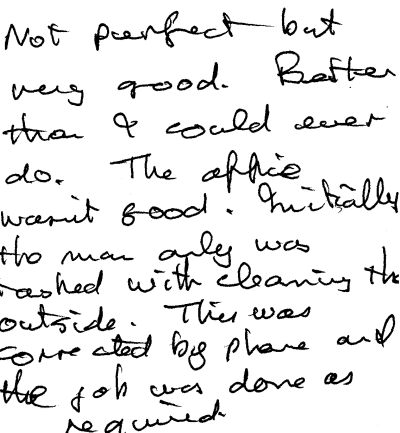 Not perfect but
very good. Better
than I could ever
do. The office
wasn't good. Initially
the man only was
tasked with cleaning the
outside. This was
corrected by phone and
the job was done as
required